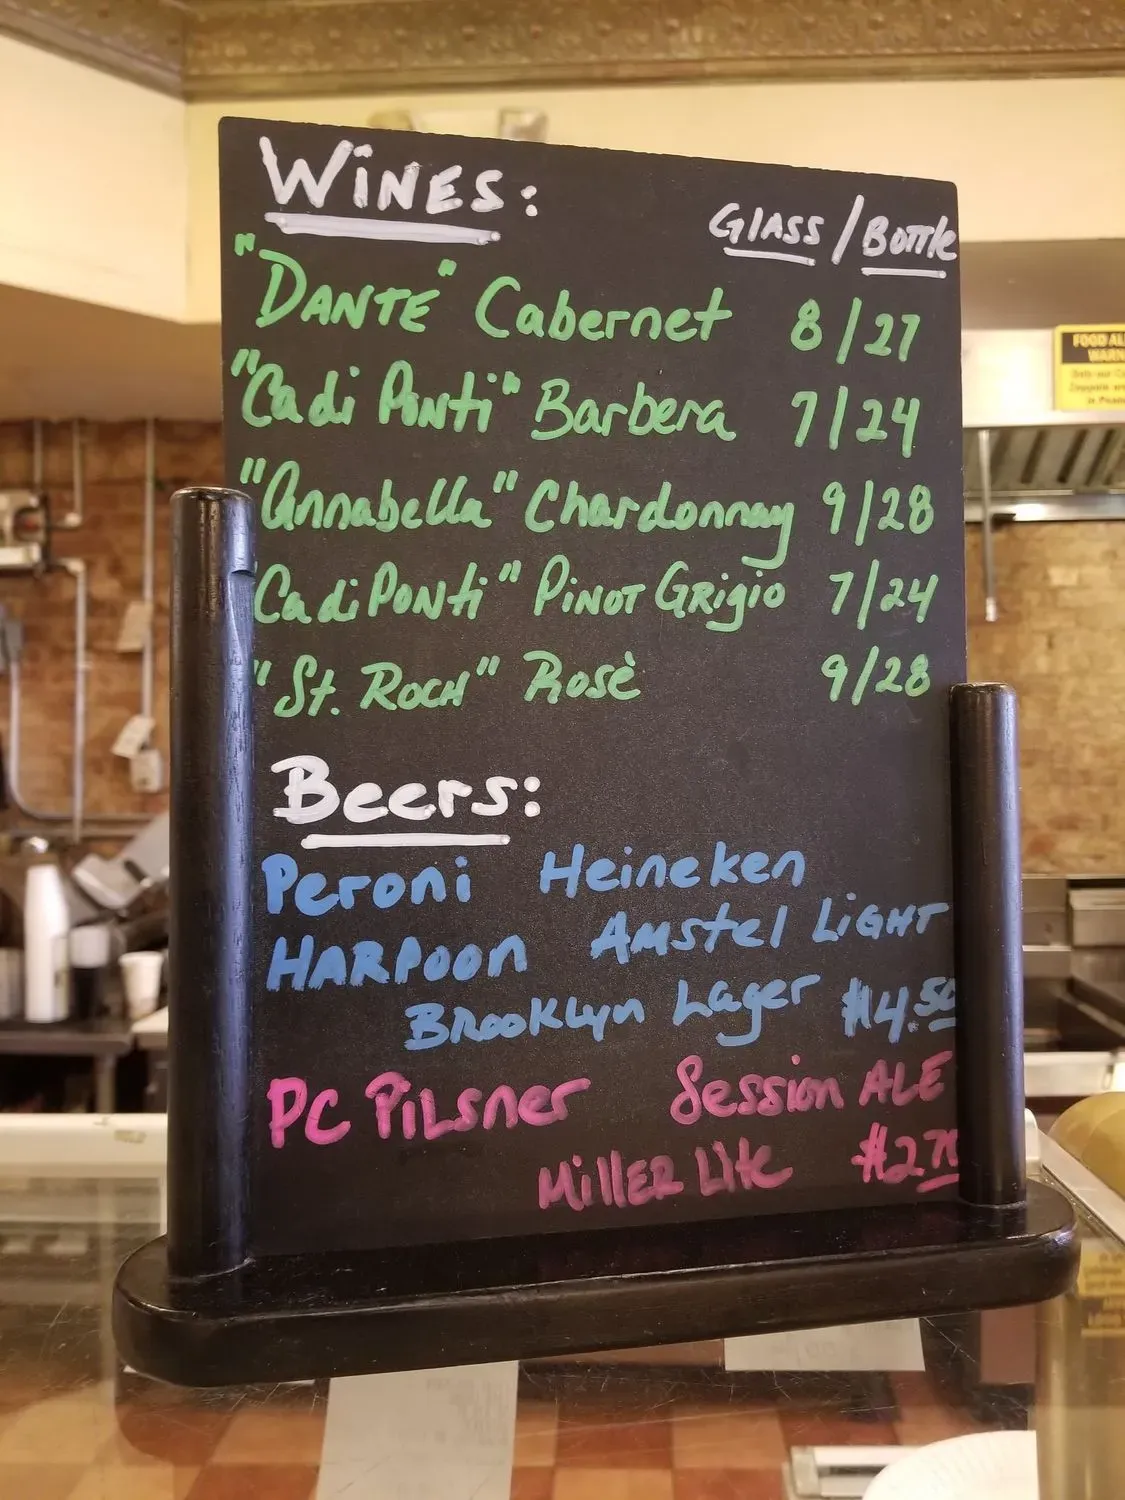 WINES:
GLASS / BOTTLE
"DANTE" Cabernet 8/27
"Cadi Ponti" Barbera 7/24
"Annabella" Chardonnay 9/28
Cadi PONti" PiNOT GRigio 7/24
"St. ROCH" Rosè 9/28
Beers:
Peroni Heineken
HARPOON Amstel LiGHT
Brooklyn Lager $4.50
PC PiLsner Session ALE
MillER Lite
FOOD AL
WARN